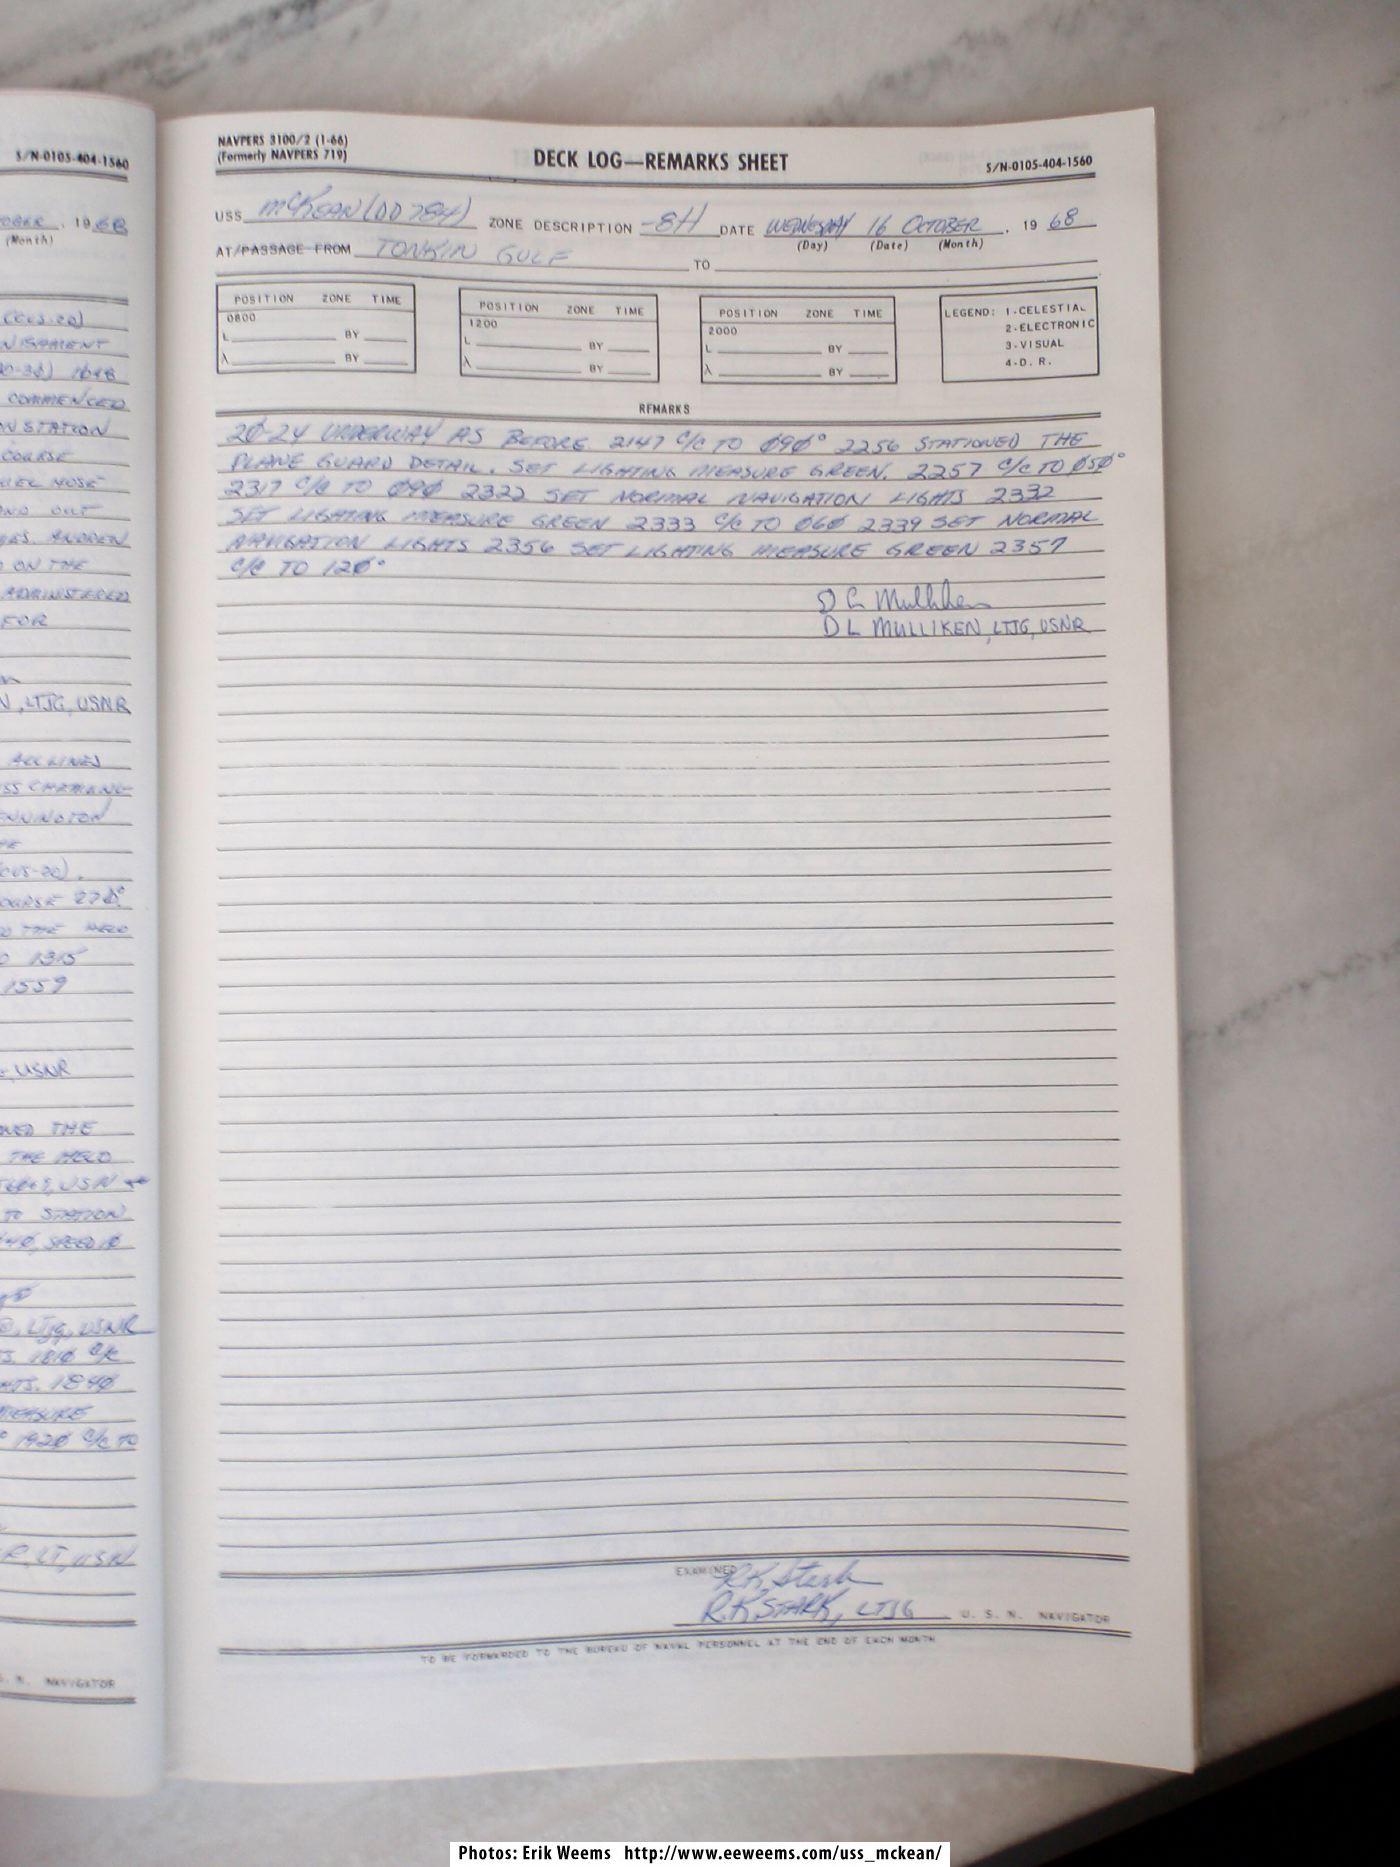 S/N-0105-404-1560
OBER, 1968
(Month)
(CVS-20)
COMMENCED
ON STATION
COURSE
OUT
ON THE
ADMINISTERED
FOR
N, LTJG, USNR
ALL LINES
ENNINGTON
(CVS-20).
COURSE 270°.
THE HELO
1315
1559
USNR
THE
THE HELO
USN
TO STATION
SPEED 10
LTJG, USNR
1810 C/C
1840
MEASURE
1920 C/C TO
LT, USN
NAVIGATOR
NAVPERS 3100/2 (1-66)
(Formerly NAVPERS 719)
DECK LOG—REMARKS SHEET
S/N-0105-404-1560
USS McKEAN (DD 784) ZONE DESCRIPTION -8H DATE WEDNESDAY 16 OCTOBER, 1968
(Day) (Date) (Month)
AT/PASSAGE FROM TONKIN GULF TO
POSITION ZONE TIME
0800
L BY
λ BY
POSITION ZONE TIME
1200
L BY
λ BY
POSITION ZONE TIME
2000
L BY
λ BY
LEGEND: 1-CELESTIAL
2-ELECTRONIC
3-VISUAL
4-D. R.
REMARKS
20-24 UNDERWAY AS BEFORE 2147 C/C TO 090° 2256 STATIONED THE
PLANE GUARD DETAIL. SET LIGHTING MEASURE GREEN. 2257 C/C TO 050°
2317 C/C TO 090 2322 SET NORMAL NAVIGATION LIGHTS 2332
SET LIGHTING MEASURE GREEN 2333 C/C TO 060 2339 SET NORMAL
NAVIGATION LIGHTS 2356 SET LIGHTING MEASURE GREEN 2357
C/C TO 120°
D L Mulliken
D L MULLIKEN, LTJG, USNR
EXAMINED
R.K. Stark
R.K. STARK, LTJG U. S. N. NAVIGATOR
TO BE FORWARDED TO THE BUREAU OF NAVAL PERSONNEL AT THE END OF EACH MONTH
Photos: Erik Weems http://www.eeweems.com/uss_mckean/